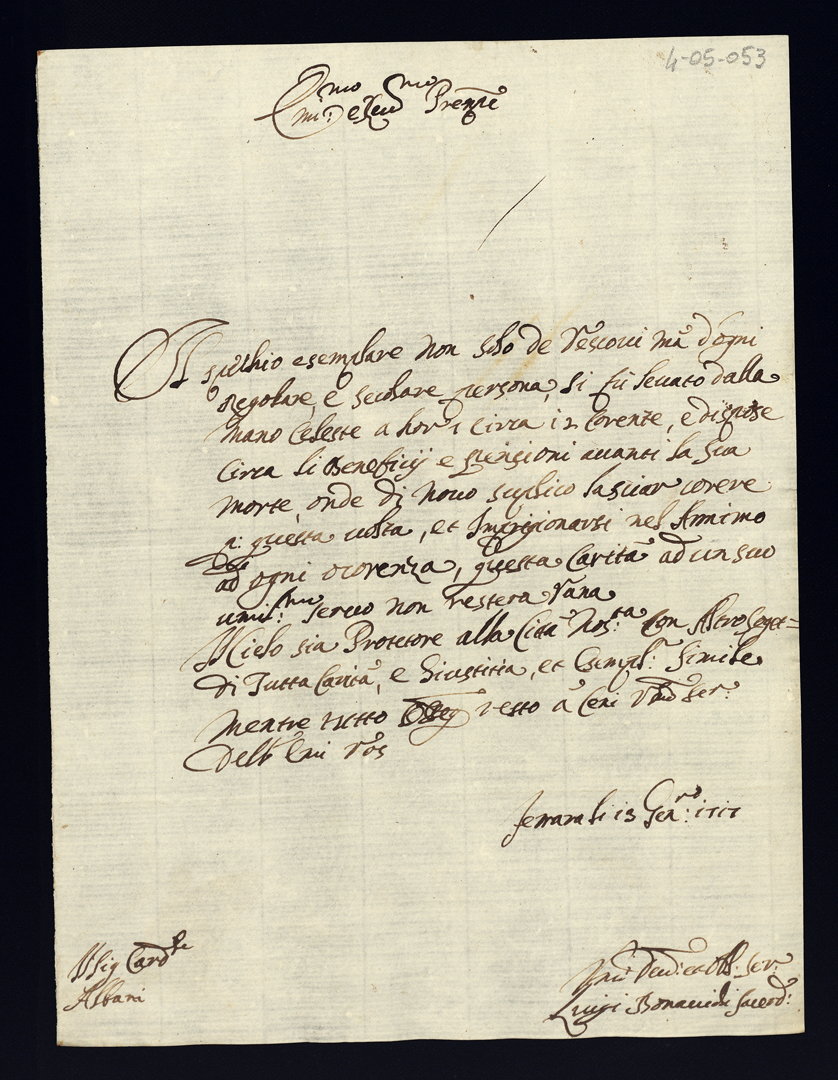 4-05-053
Em.mo e Rev.mo Prenpe
Il spechio esemplare non solo de Vescovi mà d'ogni
Regolare, e secolare persona, si fù levato dalla
mano Celeste a hor 1 circa 12 Corente, e dispose
circa li Beneficij e pensioni avanti la sua
morte, onde di novo suplico lasciar corere
p: questa volta, et Imprigionarsi nel Animo
ad ogni ocorenza, questa Carità ad un suo
umil.mo servo non restera Vana
Il Cielo sia Protetore alla Città Nos:ta Con Altro soget=
di Tutta Carità, e Giustitia, et Esempl: Simile
mentre tutto resto à Ceni Vmo ser:
Dell' Em Vos
Ferrara li 13 Gen:ro 1717
Il Sig Card.le
Albani
Um: Dev: et Obl: Ser:
Luigi Bonacuidi Sacerd: